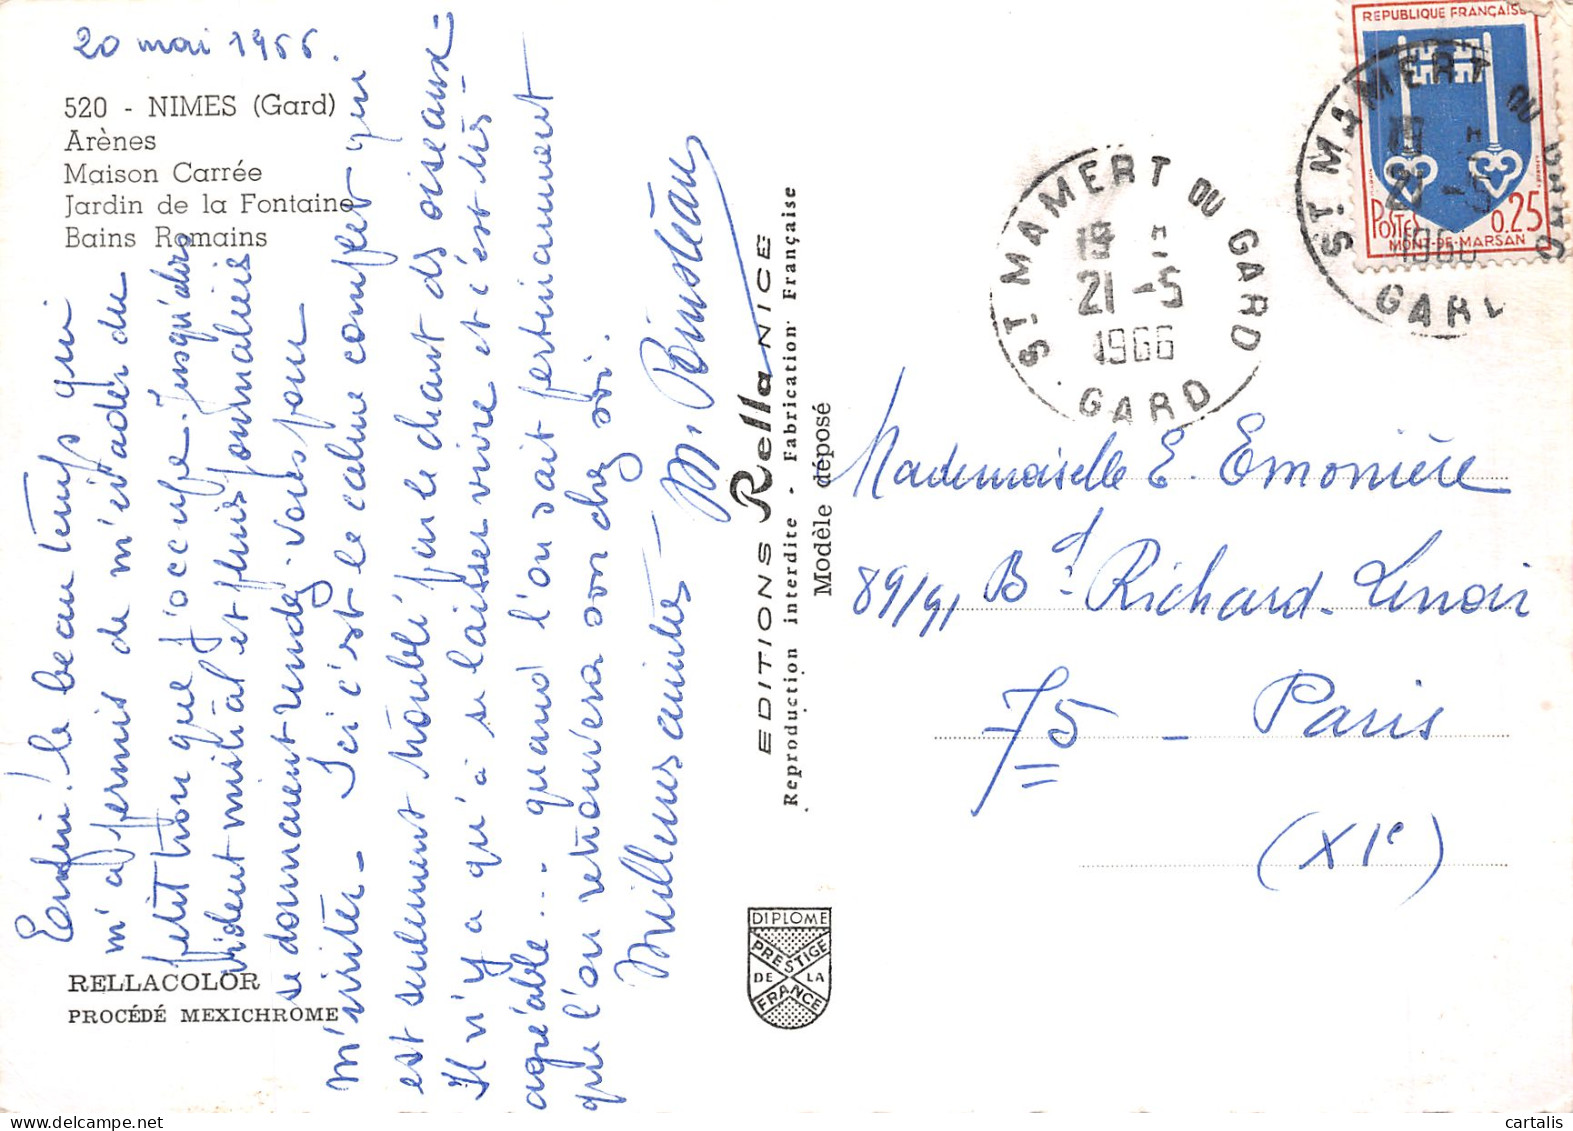 20 mai 1966.
520 - NIMES (Gard)
Arènes
Maison Carrée
Jardin de la Fontaine
Bains Romains
Enfin! le beau temps qui
m'a permis de m'évader du
petit trou que j'occupe. Jusqu'alors
vident et puis
se donnaient rendez-vous pour
m'irriter - Ici c'est le calme complet qui
est seulement troublé par le chant ds oiseaux -
Il n'y a qu'à se laisser vivre et c'est très
agréable... quand l'on sait pertinemment
que l'on retrouvera son chez soi.
Milleurs amitiés - M.
RELLACOLOR
PROCÉDÉ MEXICHROME
EDITIONS Rella NICE
Reproduction interdite - Fabrication Française
Modèle déposé
DIPLOME
PRESTIGE
DE LA
FRANCE
REPUBLIQUE FRANÇAISE
POSTES 0.25
MONT-DE-MARSAN
ST MAMERT DU GARD
21 -5
1966
GARD
ST MAMERT DU GARD
21 -5
1966
GARD
Mademoiselle E. Emonière
89/91 Bd Richard-Lenoir
75 - Paris
(XIe)
cartalis